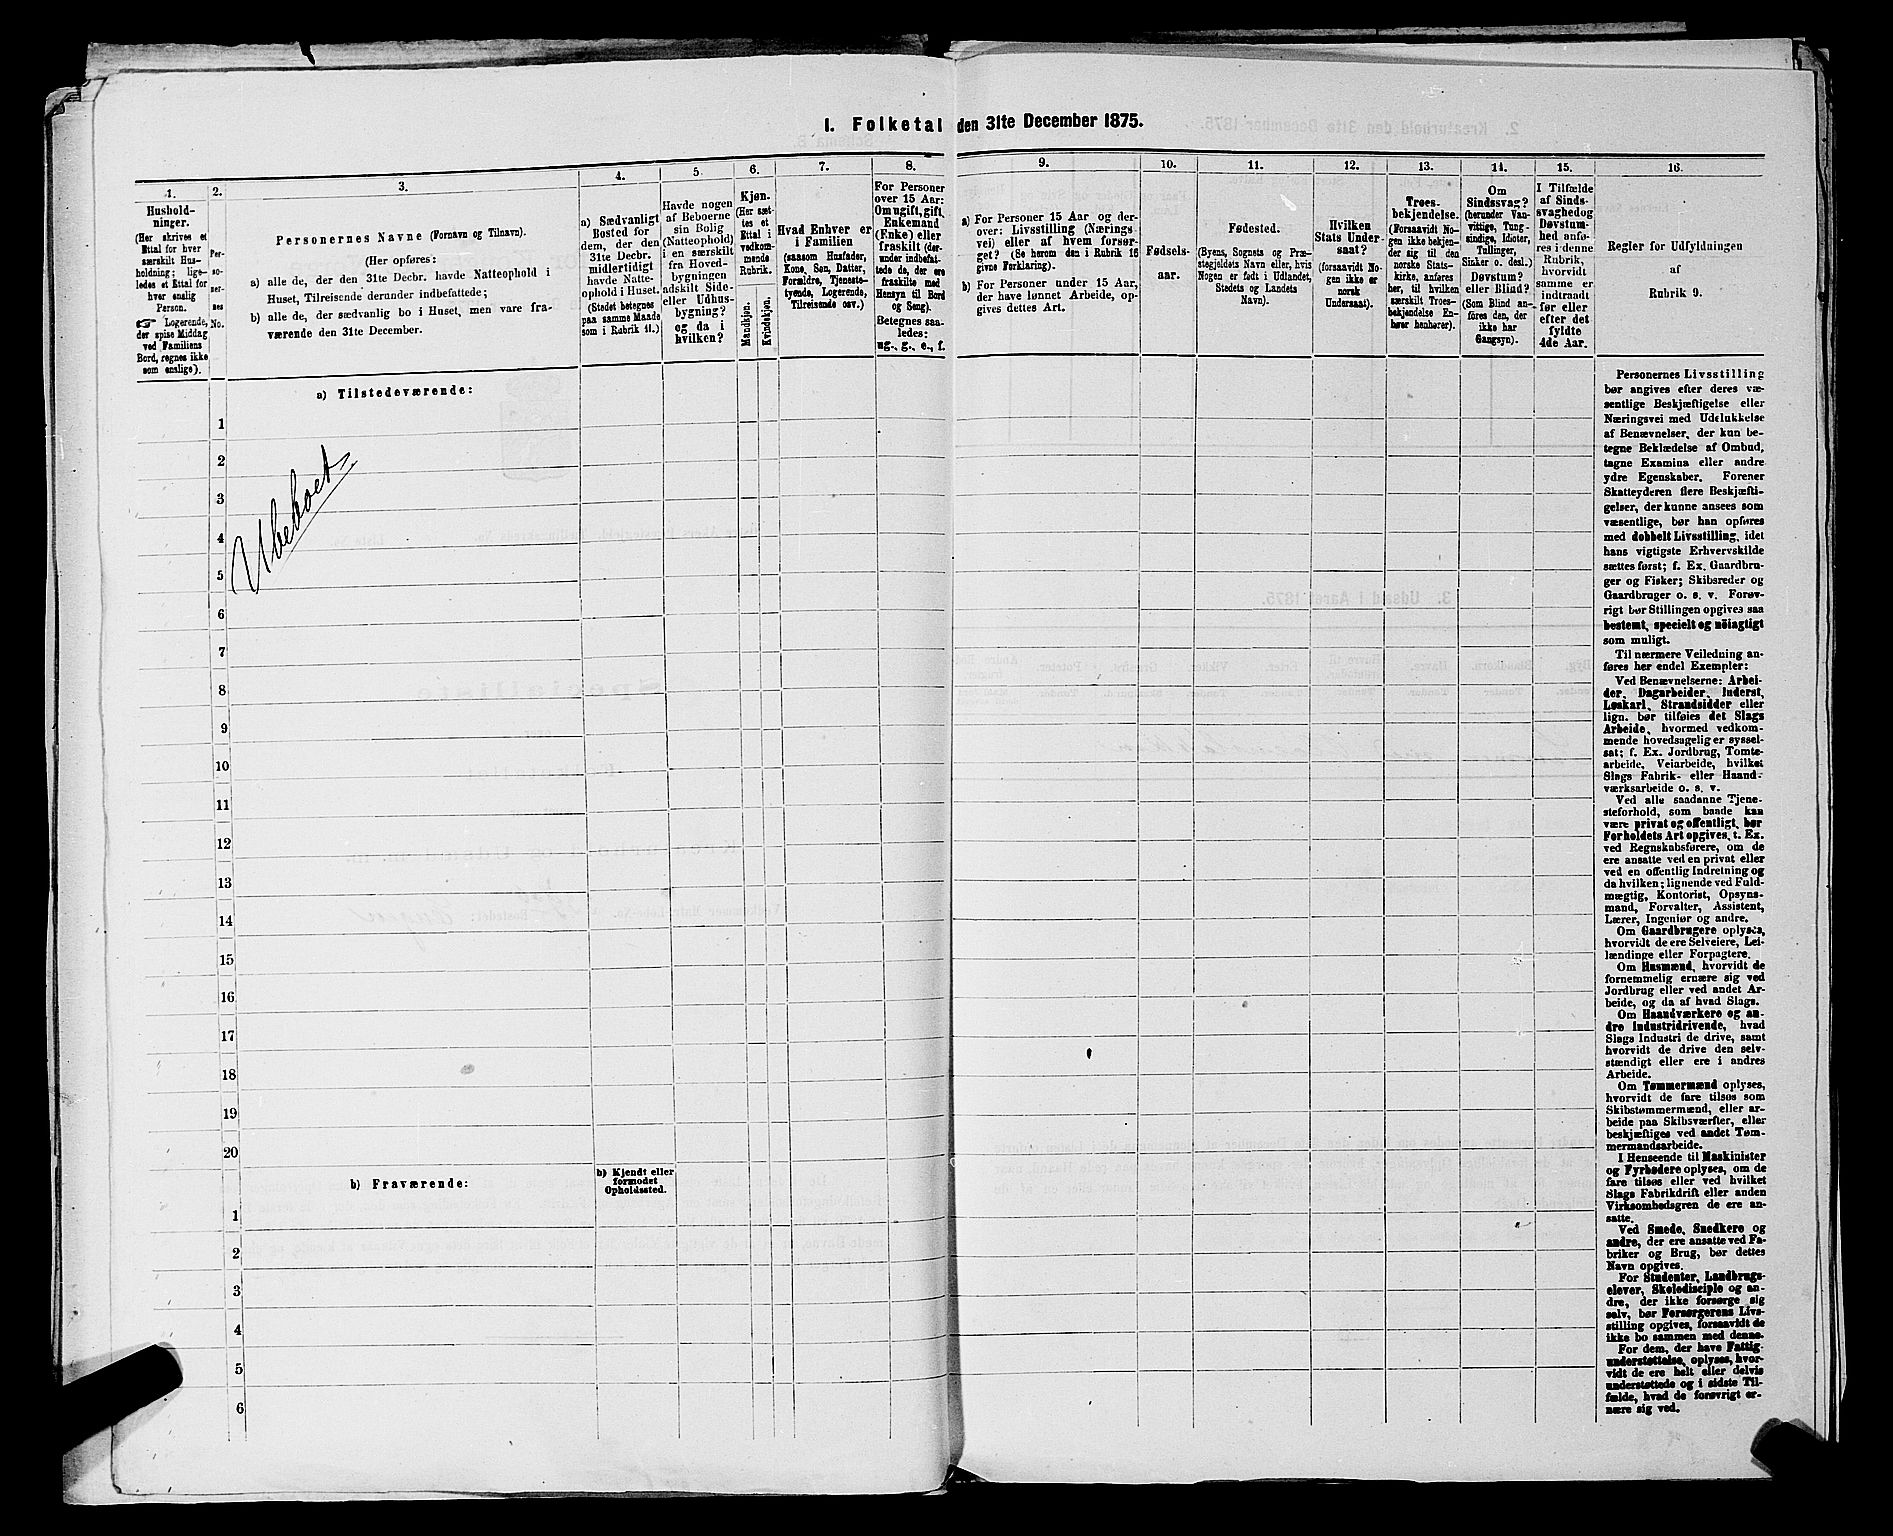 I. Folketal den 31te December 1875.
1.
Hushold-
ninger.
(Her skrives et
Ettal for hver
særskilt Hus-
holdning; lige-
ledes et Ettal for
hver enslig
Person.
☞ Logerende,
der spise Middag
ved Familiens
Bord, regnes ikke
som enslige).
2.
Per-
so-
ner-
nes
No.
3.
Personernes Navne (Fornavn og Tilnavn).
(Her opføres:
a) alle de, der den 31te Decbr. havde Natteophold i
Huset, Tilreisende derunder indbefattede;
b) alle de, der sædvanlig bo i Huset, men vare fra-
værende den 31te December.
4.
a) Sædvanligt
Bosted for
dem, der den
31te Decbr.
midlertidigt
havde Natte-
ophold i Huset.
(Stedet betegnes
paa samme Maade
som i Rubrik 11.)
5.
Havde nogen
af Beboerne
sin Bolig
(Natteophold)
i en særskilt
fra Hoved-
bygningen
adskilt Side-
eller Udhus-
bygning?
og da i
hvilken?
6.
Kjøn.
(Her sæt-
tes et
Ettal i
vedkom-
mende
Rubrik.
Mandkjøn.
Kvindekjøn.
7.
Hvad Enhver er
i Familien
(saasom Husfader,
Kone, Søn, Datter,
Forældre, Tjeneste-
tyende, Logerende,
Tilreisende osv.)
8.
For Personer
over 15 Aar:
Om ugift, gift,
Enkemand
(Enke) eller
fraskilt (der-
under indbefat-
tede de, der ere
fraskilte med
Hensyn til Bord
og Seng).
Betegnes saa-
ledes:
ug., g., e., f.
9.
a) For Personer 15 Aar og der-
over: Livsstilling (Nærings-
vei) eller af hvem forsør-
get? (Se herom den i Rubrik 16
givne Forklaring).
b) For Personer under 15 Aar,
der have lønnet Arbeide, op-
gives dettes Art.
10.
Fødsels-
aar.
11.
Fødested.
(Byens, Sognets og Præ-
stegjeldets Navn eller, hvis
Nogen er født i Udlandet,
Stedets og Landets
Navn).
12.
Hvilken
Stats Under-
saat?
(forsaavidt No-
gen ikke er
norsk
Undersaat).
13.
Troes-
bekjendelse.
(Forsaavidt No-
gen ikke bekjen-
der sig til den
norske Stats-
kirke, anføres
her, til hvilken
særskilt Troes-
bekjendelse En-
hver henhører).
14.
Om
Sindssvag?
(herunder Van-
vittige, Tung-
sindige, Idioter,
Tullinger,
Sinker o. desl.)
Døvstum?
eller Blind?
(Som Blind an-
føres den, der
ikke har
Gangsyn).
15.
I Tilfælde
af Sinds-
svaghed og
Døvstum-
hed anfø-
res i denne
Rubrik,
hvorvidt
samme er
indtraadt
før eller
efter det
fyldte
4de Aar.
16.
Regler for Udfyldningen
af
Rubrik 9.
a) Tilstedeværende:
1
2
3
4
5
Ubeboet
6
7
8
9
10
11
12
13
14
15
16
17
18
19
20
b) Fraværende:
b) Kjendt eller
formodet
Opholdssted.
1
2
3
4
5
6
Personernes Livsstilling
bør angives efter deres væ-
sentlige Beskjæftigelse eller
Næringsvei med Udelukkelse
af Benævnelser, der kun be-
tegne Beklædelse af Ombud,
tagne Examina eller andre
ydre Egenskaber. Forener
Skatteyderen flere Beskjæfti-
gelser, der kunne ansees som
væsentlige, bør han opføres
med dobbelt Livsstilling, idet
hans vigtigste Erhvervskilde
sættes først; f. Ex. Gaardbru-
ger og Fisker; Skibsreder og
Gaardbruger o. s. v. Forøv-
rigt bør Stillingen opgives saa
bestemt, specielt og nöiagtigt
som muligt.
Til nærmere Veiledning an-
føres her endel Exempler:
Ved Benævnelserne: Arbei-
der, Dagarbeider, Inderst,
Løskarl, Strandsidder eller
lign. bør tilføies det Slags
Arbeide, hvormed vedkom-
mende hovedsagelig er syssel-
sat; f. Ex. Jordbrug, Tomte-
arbeide, Veiarbeide, hvilket
Slags Fabrik- eller Haand-
værksarbeide o. s. v.
Ved alle saadanne Tjene-
steforhold, som baade kan
være privat og offentligt, bør
Forholdets Art opgives, t. Ex.
ved Regnskabsførere, om de
ere ansatte ved en privat eller
ved en offentlig Indretning og
da hvilken; lignende ved Fuld-
mægtig, Kontorist, Opsyns-
mand, Forvalter, Assistent,
Lærer, Ingeniør og andre.
Om Gaardbrugere oplyses,
hvorvidt de ere Selveiere, Lei-
lændinge eller Forpagtere.
Om Husmænd, hvorvidt de
fornemmelig ernære sig ved
Jordbrug eller ved andet Ar-
beide, og da af hvad Slags.
Om Haandværkere og an-
dre Industridrivende, hvad
Slags Industri de drive, samt
hvorvidt de drive den selv-
stændigt eller ere i andres
Arbeide.
Om Tømmermænd oplyses,
hvorvidt de fare tilsøs som
Skibstømmermænd, eller ar-
beide paa Skibsværfter, eller
beskjæftiges ved andet Tøm-
mermandsarbeide.
I Henseende til Maskinister
og Fyrbødere oplyses, om de
fare tilsøs eller ved hvilket
Slags Fabrikdrift eller anden
Virksomhedsgren de ere an-
satte.
Ved Smede, Snedkere og
andre, der ere ansatte ved Fa-
briker og Brug, bør dettes
Navn opgives.
For Studenter, Landbrugs-
elever, Skoledisciple og an-
dre, der ikke forsørge sig
selv, bør Forsørgerens Livs-
stilling opgives, forsaavidt de
ikke bo sammen med denne.
For dem, der have Fattig-
understøttelse, oplyses, hvor-
vidt de ere helt eller delvis
understøttede og i sidste Til-
fælde, hvad de forøvrigt er-
nære sig ved.